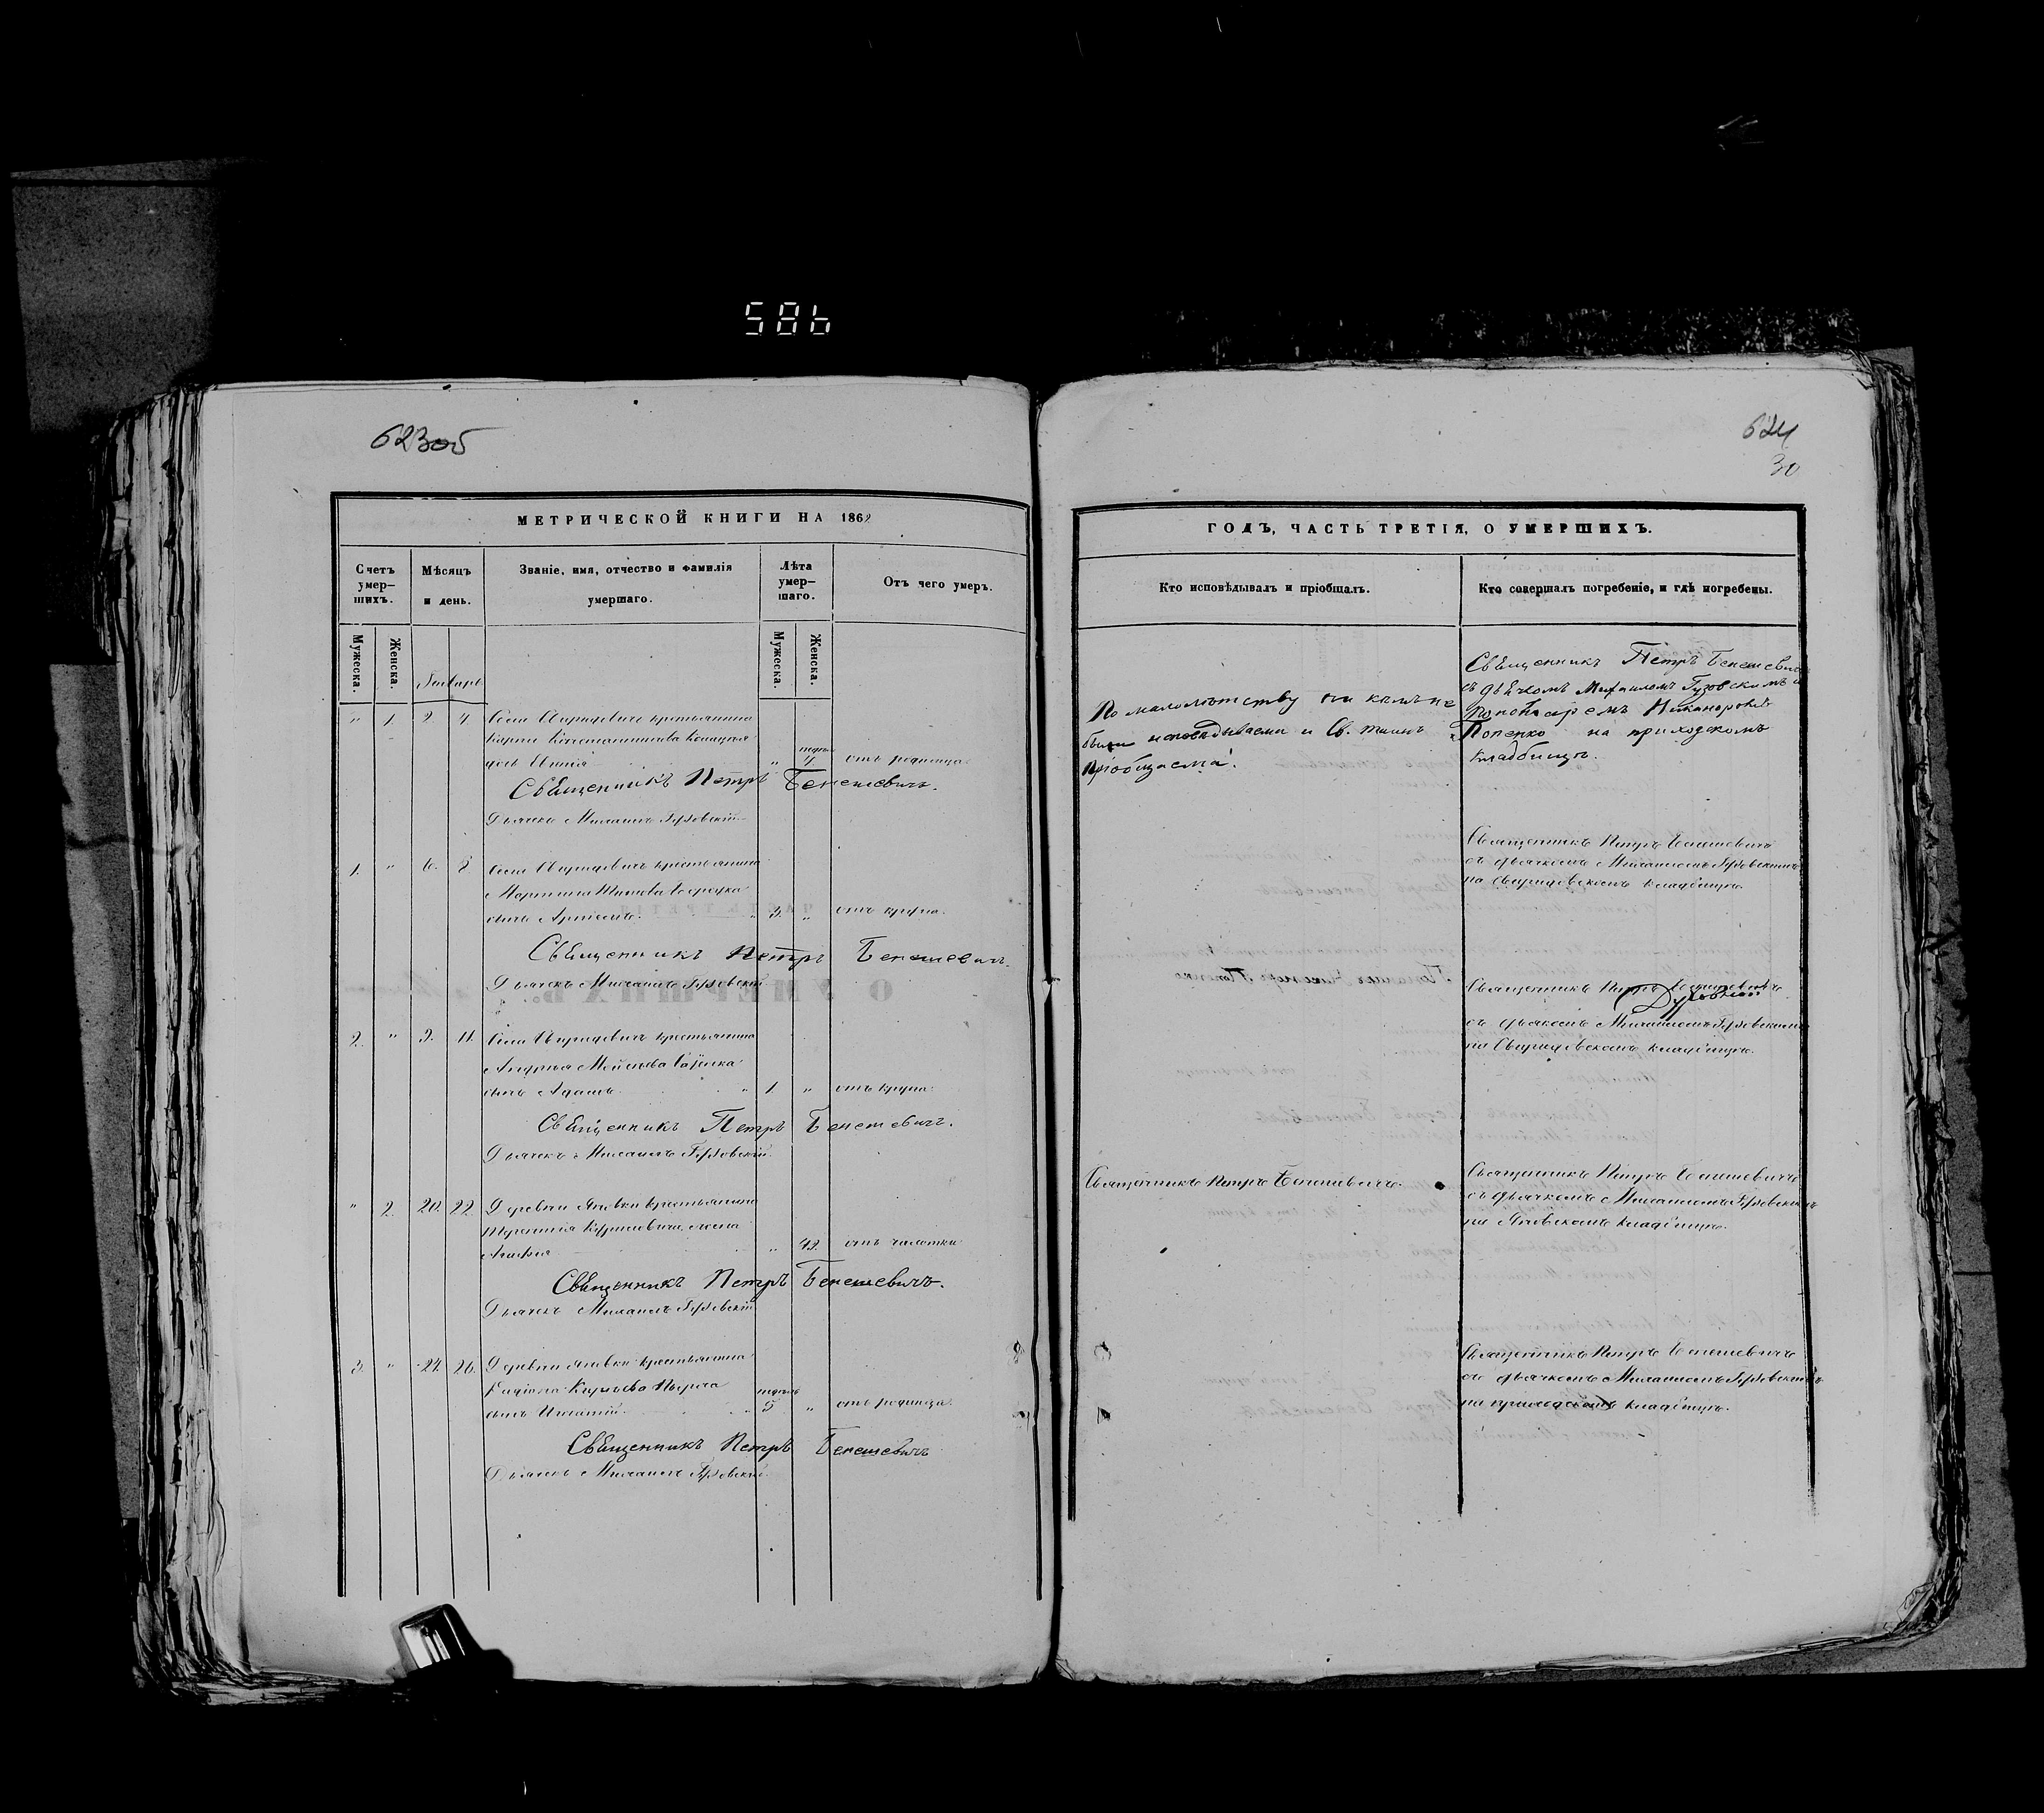 586
623об
МЕТРИЧЕСКОЙ КНИГИ НА 1862
Счетъ умер-шихъ.
Мѣсяцъ и день.
Званіе, имя, отчество и фамилія умершаго.
Лѣта умер-шаго.
Отъ чего умеръ.
Мужеска.
Женска.
Январь
Мужеска.
Женска.
" 1. 2. 4. Села Свиридовичъ крестьянина
Карпа Константинова
дочь
" 4. отъ родимца.
Священникъ Петръ Бенешевичъ.
Дьячекъ Михаилъ Гузовскій
1. " 6. 8. Села Свиридовичъ крестьянина
Мартина
сынъ " 3. " отъ крупа.
Священникъ Петръ Бенешевичъ.
Дьячекъ Михаилъ Гузовскій
2. " 9. 11. Села Свиридовичъ крестьянина
Андрея
сынъ Адамъ " 1. " отъ крупа.
Священникъ Петръ Бенешевичъ.
Дьячекъ Михаилъ Гузовскій
" 2. 20. 22. Деревни крестьянина
жена
" 42. отъ чахотки
Священникъ Петръ Бенешевичъ.
Дьячекъ Михаилъ Гузовскій
3. " 24. 26. Деревни крестьянина
сынъ Игнатій " 5 " отъ родимца.
Священникъ Петръ Бенешевичъ
Дьячекъ Михаилъ Гузовскій
624
30
ГОДЪ, ЧАСТЬ ТРЕТІЯ, О УМЕРШИХЪ.
Кто исповѣдывалъ и пріобщалъ.
Кто совершалъ погребеніе, и гдѣ погребены.
По малолѣтству ни кѣмъ не
были исповѣдываемы и Св. таинъ
пріобщаемы.
Священникъ Петръ Бенешевичъ
съ дьячкомъ Михаиломъ Гузовскимъ и
пономаремъ Никаноромъ
Попенко на приходскомъ
кладбищѣ.
Священникъ Петръ Бенешевичъ
съ дьячкомъ Михаиломъ Гузовскимъ
на Свиридовскомъ кладбищѣ.
Священникъ Петръ Бенешевичъ
съ дьячкомъ Михаиломъ Гузовскимъ
на Свиридовскомъ кладбищѣ.
Священникъ Петръ Бенешевичъ.
Священникъ Петръ Бенешевичъ
съ дьячкомъ Михаиломъ Гузовскимъ
на кладбищѣ.
Священникъ Петръ Бенешевичъ
съ дьячкомъ Михаиломъ Гузовскимъ
на приходскомъ кладбищѣ.